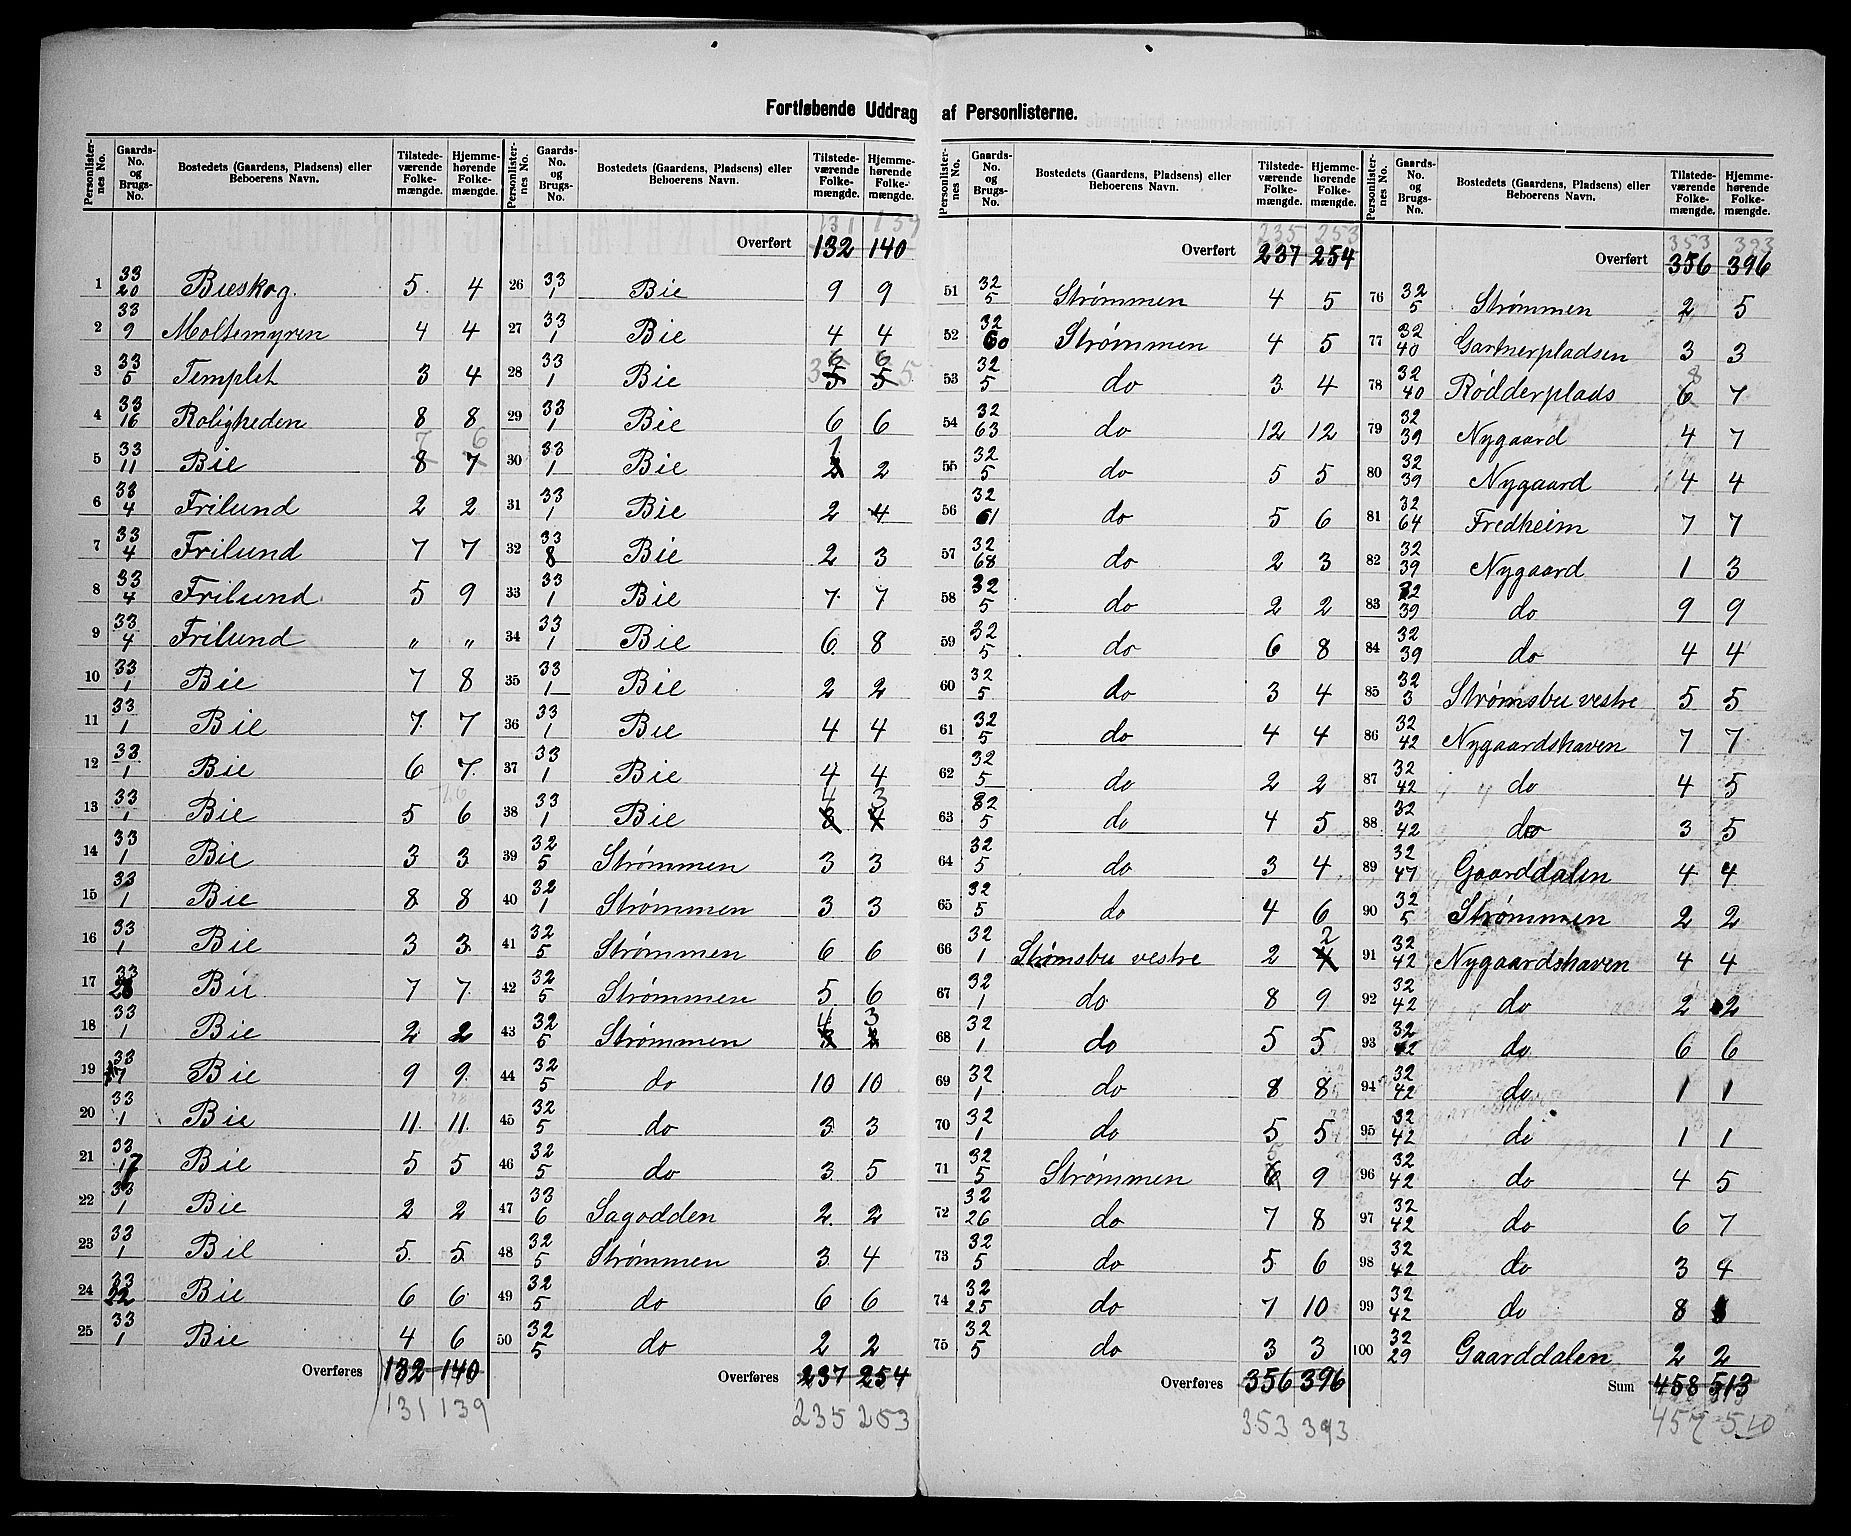 Fortløbende Uddrag af Personlisterne.
Personlisternes No. | Gaards-No. og Brugs-No. | Bostedets (Gaardens, Pladsens) eller Beboerens Navn. | Tilstedeværende Folkemængde. | Hjemmehørende Folkemængde.
1 33/20 Bieskog 5 4
2 33/9 Moltemyren 4 4
3 33/5 Templet 3 4
4 33/16 Roligheden 8 8
5 33/11 Bie 8 7 7 6
6 33/4 Frilund 2 2
7 33/4 Frilund 7 7
8 33/4 Frilund 5 9
9 33/4 Frilund " "
10 33/1 Bie 7 8
11 33/1 Bie 7 7
12 33/1 Bie 6 7
13 33/1 Bie 5 6
14 33/1 Bie 3 3
15 33/1 Bie 8 8
16 33/1 Bie 3 3
17 33/28 Bie 7 7
18 33/1 Bie 2 2
19 33/7 Bie 9 9
20 33/1 Bie 11 11
21 33/17 Bie 5 5
22 33/1 Bie 2 2
23 33/1 Bie 5 5
24 33/22 Bie 6 6
25 33/1 Bie 4 6
Overføres 132 140
131 139
Personlisternes No. | Gaards-No. og Brugs-No. | Bostedets (Gaardens, Pladsens) eller Beboerens Navn. | Tilstedeværende Folkemængde. | Hjemmehørende Folkemængde.
131 139
Overført 132 140
26 33/1 Bie 9 9
27 33/1 Bie 4 4
28 33/1 Bie 6 6
29 33/1 Bie 6 6
30 33/1 Bie 1 2
31 33/1 Bie 2 4
32 33/8 Bie 2 3
33 33/1 Bie 7 7
34 33/1 Bie 6 8
35 33/1 Bie 2 2
36 33/1 Bie 4 4
37 33/1 Bie 4 4
38 33/1 Bie 4 3
39 32/5 Strømmen 3 3
40 32/1 Strømmen 3 3
41 32/5 Strømmen 6 6
42 32/5 Strømmen 5 6
43 32/5 Strømmen 4 3
44 32/5 do 10 10
45 32/5 do 3 3
46 32/5 do 3 5
47 33/6 Sagodden 2 2
48 32/5 Strømmen 3 4
49 32/5 do 6 6
50 32/5 do 2 2
Overføres 237 254
235 253
Personlisternes No. | Gaards-No. og Brugs-No. | Bostedets (Gaardens, Pladsens) eller Beboerens Navn. | Tilstedeværende Folkemængde. | Hjemmehørende Folkemængde.
235 253
Overført 237 254
51 32/5 Strømmen 4 5
52 32/60 Strømmen 4 5
53 32/5 do 3 4
54 32/63 do 12 12
55 32/5 do 5 5
56 32/61 do 5 6
57 32/68 do 2 3
58 32/5 do 2 2
59 32/5 do 6 8
60 32/5 do 3 4
61 32/5 do 4 4
62 32/5 do 2 2
63 32/5 do 4 5
64 32/5 do 3 4
65 32/5 do 4 6
66 32/1 Strømsbu vestre 2 2
67 32/1 do 8 9
68 32/1 do 5 5
69 32/1 do 8 8
70 32/1 do 5 5
71 32/5 Strømmen 6 9
72 32/26 do 7 8
73 32/5 do 5 6
74 32/25 do 7 10
75 32/5 do 3 3
Overføres 356 396
353 393
Personlisternes No. | Gaards-No. og Brugs-No. | Bostedets (Gaardens, Pladsens) eller Beboerens Navn. | Tilstedeværende Folkemængde. | Hjemmehørende Folkemængde.
353 393
Overført 356 396
76 32/5 Strømmen 2 5
77 32/40 Gartnerpladsen 3 3
78 32/40 Rødderplads 6 7 8
79 32/39 Nygaard 4 7
80 32/39 Nygaard 4 4
81 32/64 Fredheim 7 7
82 32/39 Nygaard 1 3
83 32/39 do 9 9
84 32/39 do 4 4
85 32/3 Strømsbu vestre 5 5
86 32/42 Nygaardshaven 7 7
87 32/42 do 4 5
88 32/42 do 3 5
89 32/47 Gaarddalen 4 4
90 32/5 Strømmen 2 2
91 32/42 Nygaardshaven 4 4
92 32/42 do 2 2
93 32/42 do 6 6
94 32/42 do 1 1
95 32/42 do 1 1
96 32/42 do 4 5
97 32/42 do 6 7
98 32/42 do 3 4
99 32/42 do 8
100 32/29 Gaarddalen 2 2
Sum 458 513
457 510